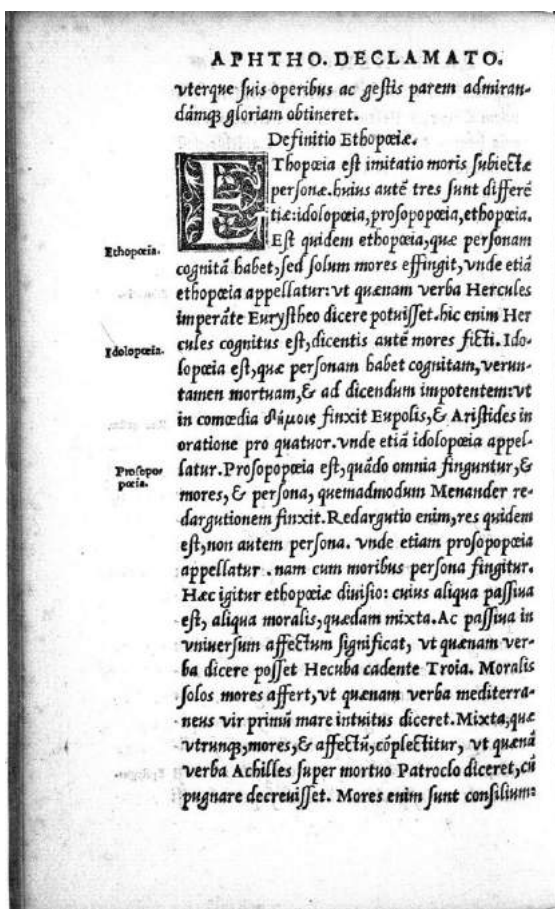 APHTHO. DECLAMATO.
vterque suis operibus ac gestis parem admiran-
dámq; gloriam obtineret.
Definitio Ethopœiæ.
EThopœia est imitatio moris subiectæ
personæ. huius autē tres sunt differē
tiæ: idolopœia, prosopopœia, ethopœia.
Est quidem ethopœia, quæ personam
Ethopœia.
cognitā habet, sed solum mores effingit, vnde etiā
ethopœia appellatur: vt quænam verba Hercules
imperāte Eurystheo dicere potuisset. hic enim Her
cules cognitus est, dicentis autē mores ficti. Ido-
Idolopœia.
lopœia est, quæ personam habet cognitam, verun-
tamen mortuam, & ad dicendum impotentem: vt
in comœdia δήμοις finxit Eupolis, & Aristides in
oratione pro quatuor. vnde etiā idolopœia appel-
latur. Prosopopœia est, quādo omnia finguntur, &
Prosopo-
pœia.
mores, & persona, quemadmodum Menander re-
dargutionem finxit. Redargutio enim, res quidem
est, non autem persona. vnde etiam prosopopœia
appellatur. nam cum moribus persona fingitur.
Hæc igitur ethopœiæ diuisio: cuius aliqua passiua
est, aliqua moralis, quædam mixta. Ac passiua in
vniuersum affectum significat, vt quænam ver-
ba dicere posset Hecuba cadente Troia. Moralis
solos mores affert, vt quænam verba mediterra-
neus vir primū mare intuitus diceret. Mixta, quæ
vtrunq;, mores, & affectū, cōplectitur, vt quænā
verba Achilles super mortuo Patroclo diceret, cū
pugnare decreuisset. Mores enim sunt consilium: